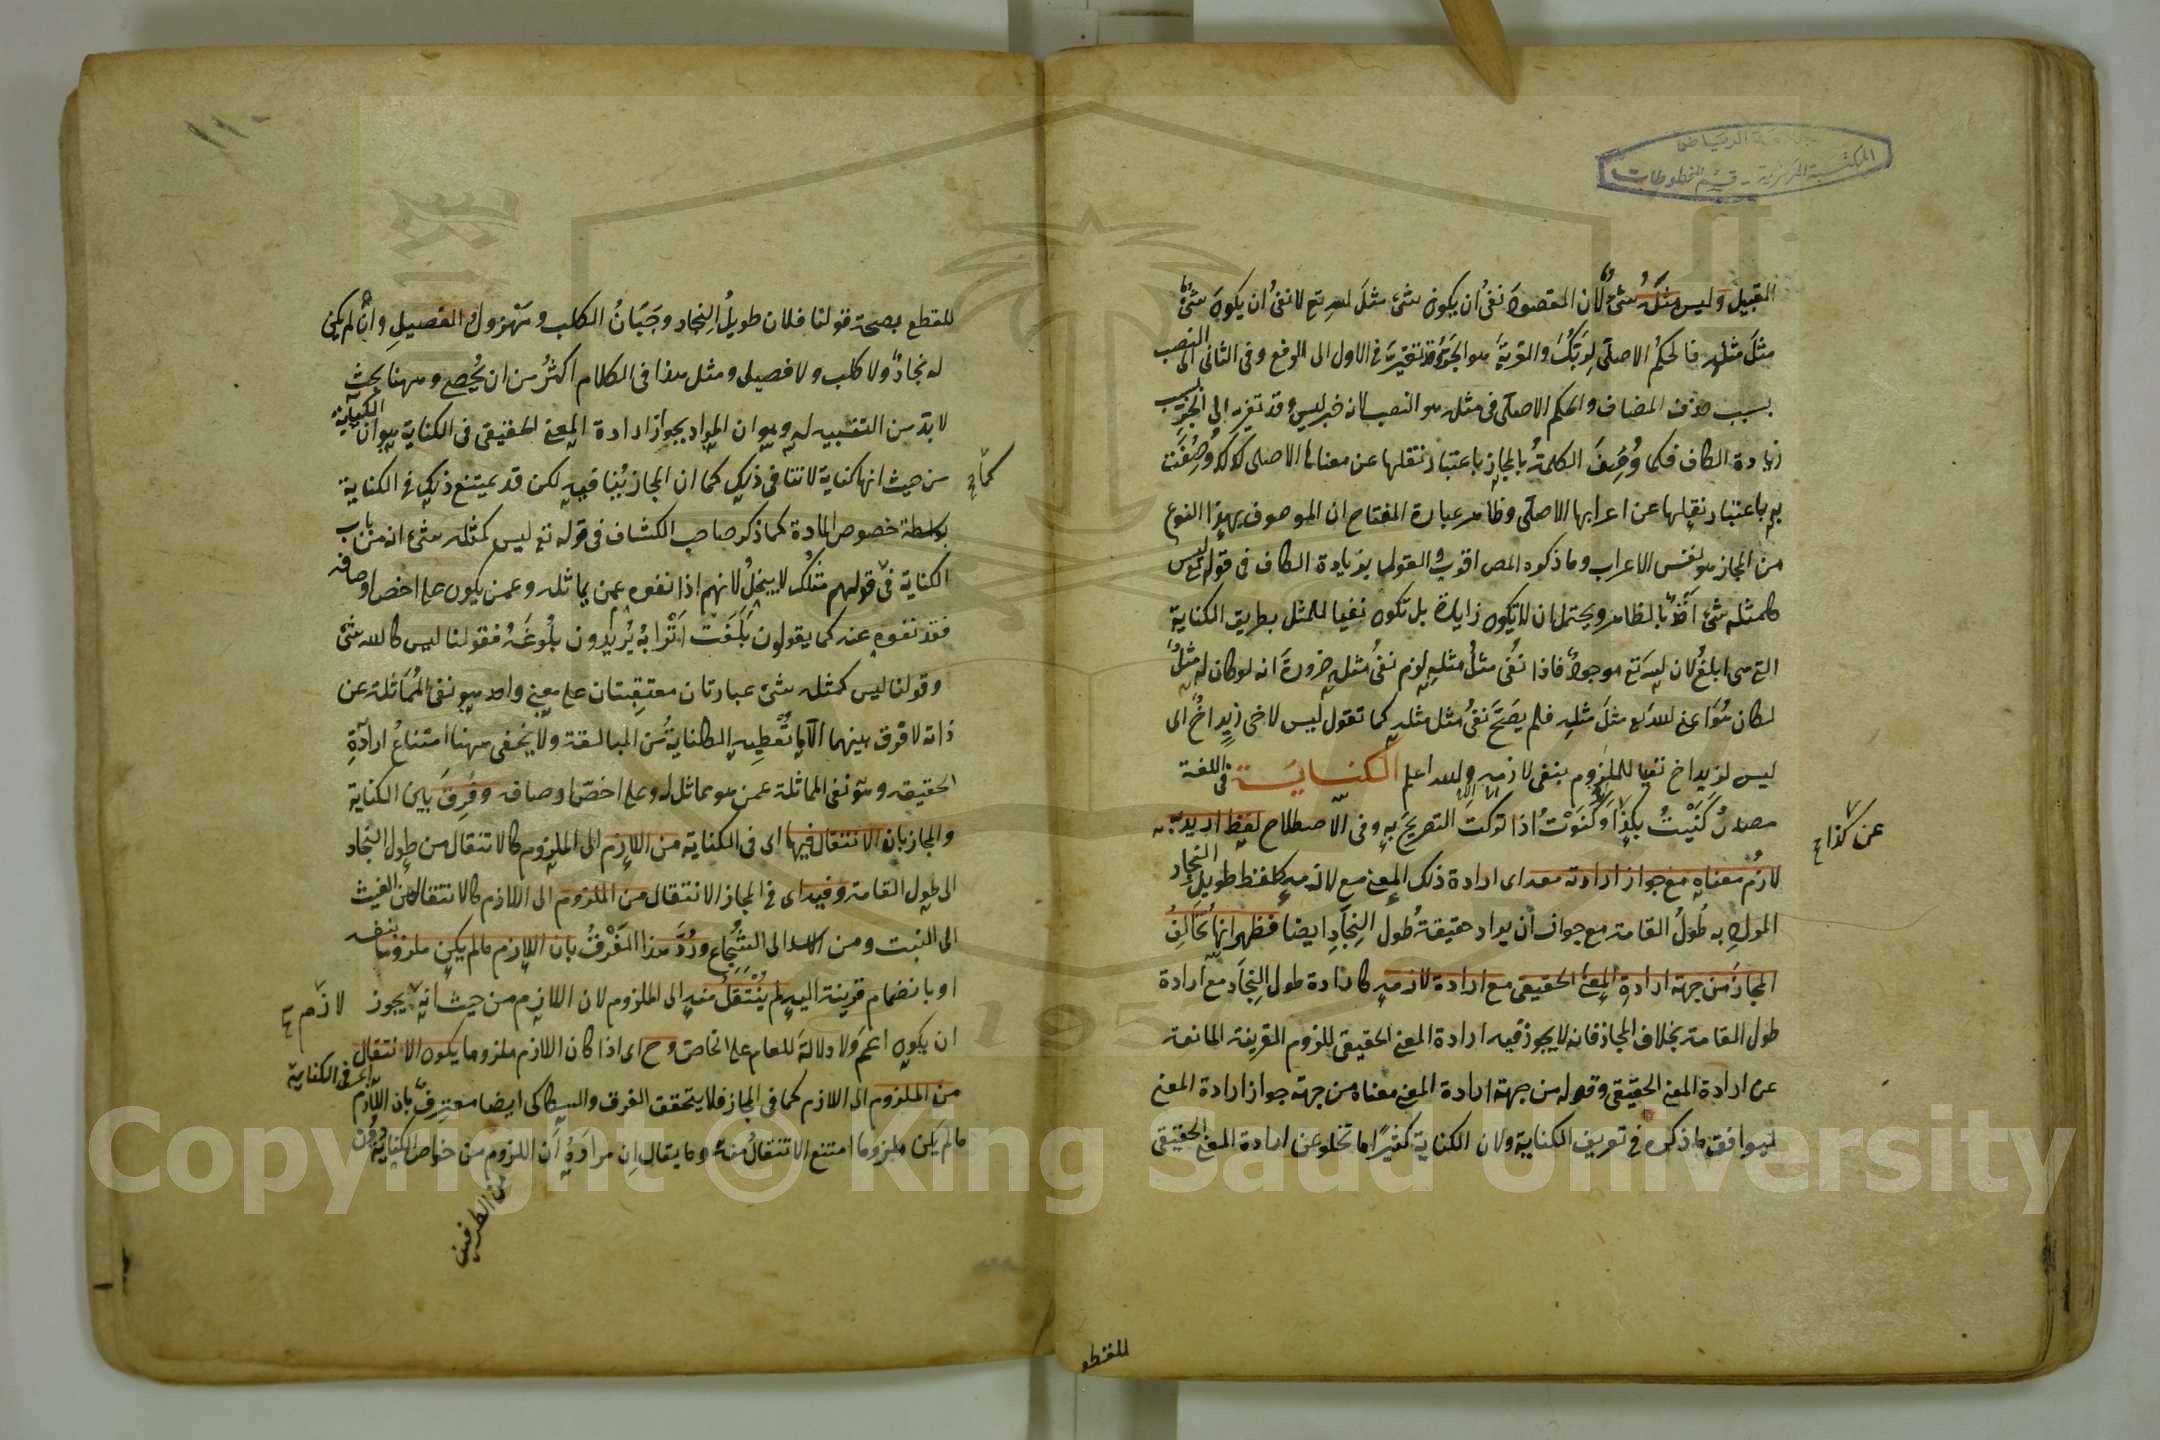 جامعة الرياض
المكتبة المركزية - قسم المخطوطات
القبيل وليس مثله شئ لان المقصود نفى ان يكون شئ مثل الله تع لا نفى ان يكون شئ
مثل مثله فالحكم الاصلى لربك والقرية هو الجر وقد تغير فى الاول الى الرفع وفى الثانى الى النصب
بسبب حذف المضاف والحكم الاصلى فى مثله هو النصب لانه خبر ليس وقد تغير الى الجر بسبب
زيادة الكاف فكما وصف الكلمة بالمجاز باعتبار نقلها عن معناها الاصلى كذلك وصفت
به باعتبار نقلها عن اعرابها الاصلى وظاهر عبارة المفتاح ان الموصوف بهذا النوع
من المجاز هو نفس الاعراب وما ذكره المص اقرب والقول بزيادة الكاف فى قوله تع ليس
كمثله شئ اخذ بالظاهر ويحتمل ان لا تكون زايدة بل تكون نفيا للمثل بطريق الكناية
التى هى ابلغ لان الله تع موجود فاذا نفى مثل مثله لزم نفى مثله ضرورة انه لو كان له مثل
لكان هو اعنى الله تع مثل مثله فلم يصح نفى مثل مثله كما تقول ليس لاخى زيد اخ اى
ليس لزيد اخ نفيا للملزوم بنفى لازمه والله اعلم الكناية فى اللغة
مصدر كنيت بكذا وكنوت اذا تركت التصريح به وفى الاصطلاح لفظ اريد به
عن كذا صح
لازم معناه مع جواز ارادته معه اى ارادة ذلك المعنى مع لازمه كلفظ طويل النجاد
المراد به طول القامة مع جواز ان يراد حقيقة طول النجاد ايضا فظهر انها تخالف
المجاز من جهة ارادة المعنى الحقيقى مع ارادة لازمه كارادة طول النجاد مع ارادة
طول القامة بخلاف المجاز فانه لا يجوز فيه ارادة المعنى الحقيقى للزوم القرينة المانعة
عن ارادة المعنى الحقيقى وقوله من جهة ارادة المعنى معناه من جهة جواز ارادة المعنى
ليوافق ما ذكره فى تعريف الكناية ولان الكناية كثيرا ما تخلو عن ارادة المعنى الحقيقى
للقطع
١١٠
للقطع بصحة قولنا فلان طويل النجاد وجبان الكلب ومهزول الفصيل وان لم يكن
له نجاد ولا كلب ولا فصيل ومثل هذا فى الكلام اكثر من ان يحصى وههنا بحث
لا بد من التنبيه له وهو ان المراد بجواز ارادة المعنى الحقيقى فى الكناية هو ان الكناية
من حيث انها كناية لا تنافى ذلك كما ان المجاز ينافيه لكن قد يمتنع ذلك فى الكناية
بواسطة خصوص المادة كما ذكر صاحب الكشاف فى قوله تع ليس كمثله شئ انه من باب
الكناية فى قولهم مثلك لا يبخل لانهم اذا نفوه عمن يماثله وعمن يكون على اخص اوصافه
فقد نفوه عنه كما يقولون بلغت اترابه يريدون بلوغه فقولنا ليس كالله شئ
وقولنا ليس كمثله شئ عبارتان معتقبتان على معنى واحد هو نفى المماثلة عن
ذاته لا فرق بينهما الا ما تعطيه الكناية من المبالغة ولا يخفى ههنا امتناع ارادة
الحقيقة وهو نفى المماثلة عمن هو مماثل له وعلى اخص اوصافه وفرق بين الكناية
والمجاز بان الانتقال فيها اى فى الكناية من اللازم الى الملزوم كالانتقال من طول النجاد
الى طول القامة وفيه اى فى المجاز الانتقال من الملزوم الى اللازم كالانتقال من الغيث
الى النبت ومن الاسد الى الشجاع ورد هذا الفرق بان اللازم ما لم يكن ملزوما بنفسه
او بانضمام قرينة اليه لم ينتقل منه الى الملزوم لان اللازم من حيث انه يجوز
لازم صح
ان يكون اعم ولا دلالة للعام على الخاص وح اى اذا كان اللازم ملزوما يكون الانتقال
من الملزوم الى اللازم كما فى المجاز فلا يتحقق الفرق والسكاكى ايضا معترف بان اللازم
ما لم يكن ملزوما امتنع الانتقال منه وما يقال ان مراده ان اللزوم من خواص الكناية دون
من الطرفين